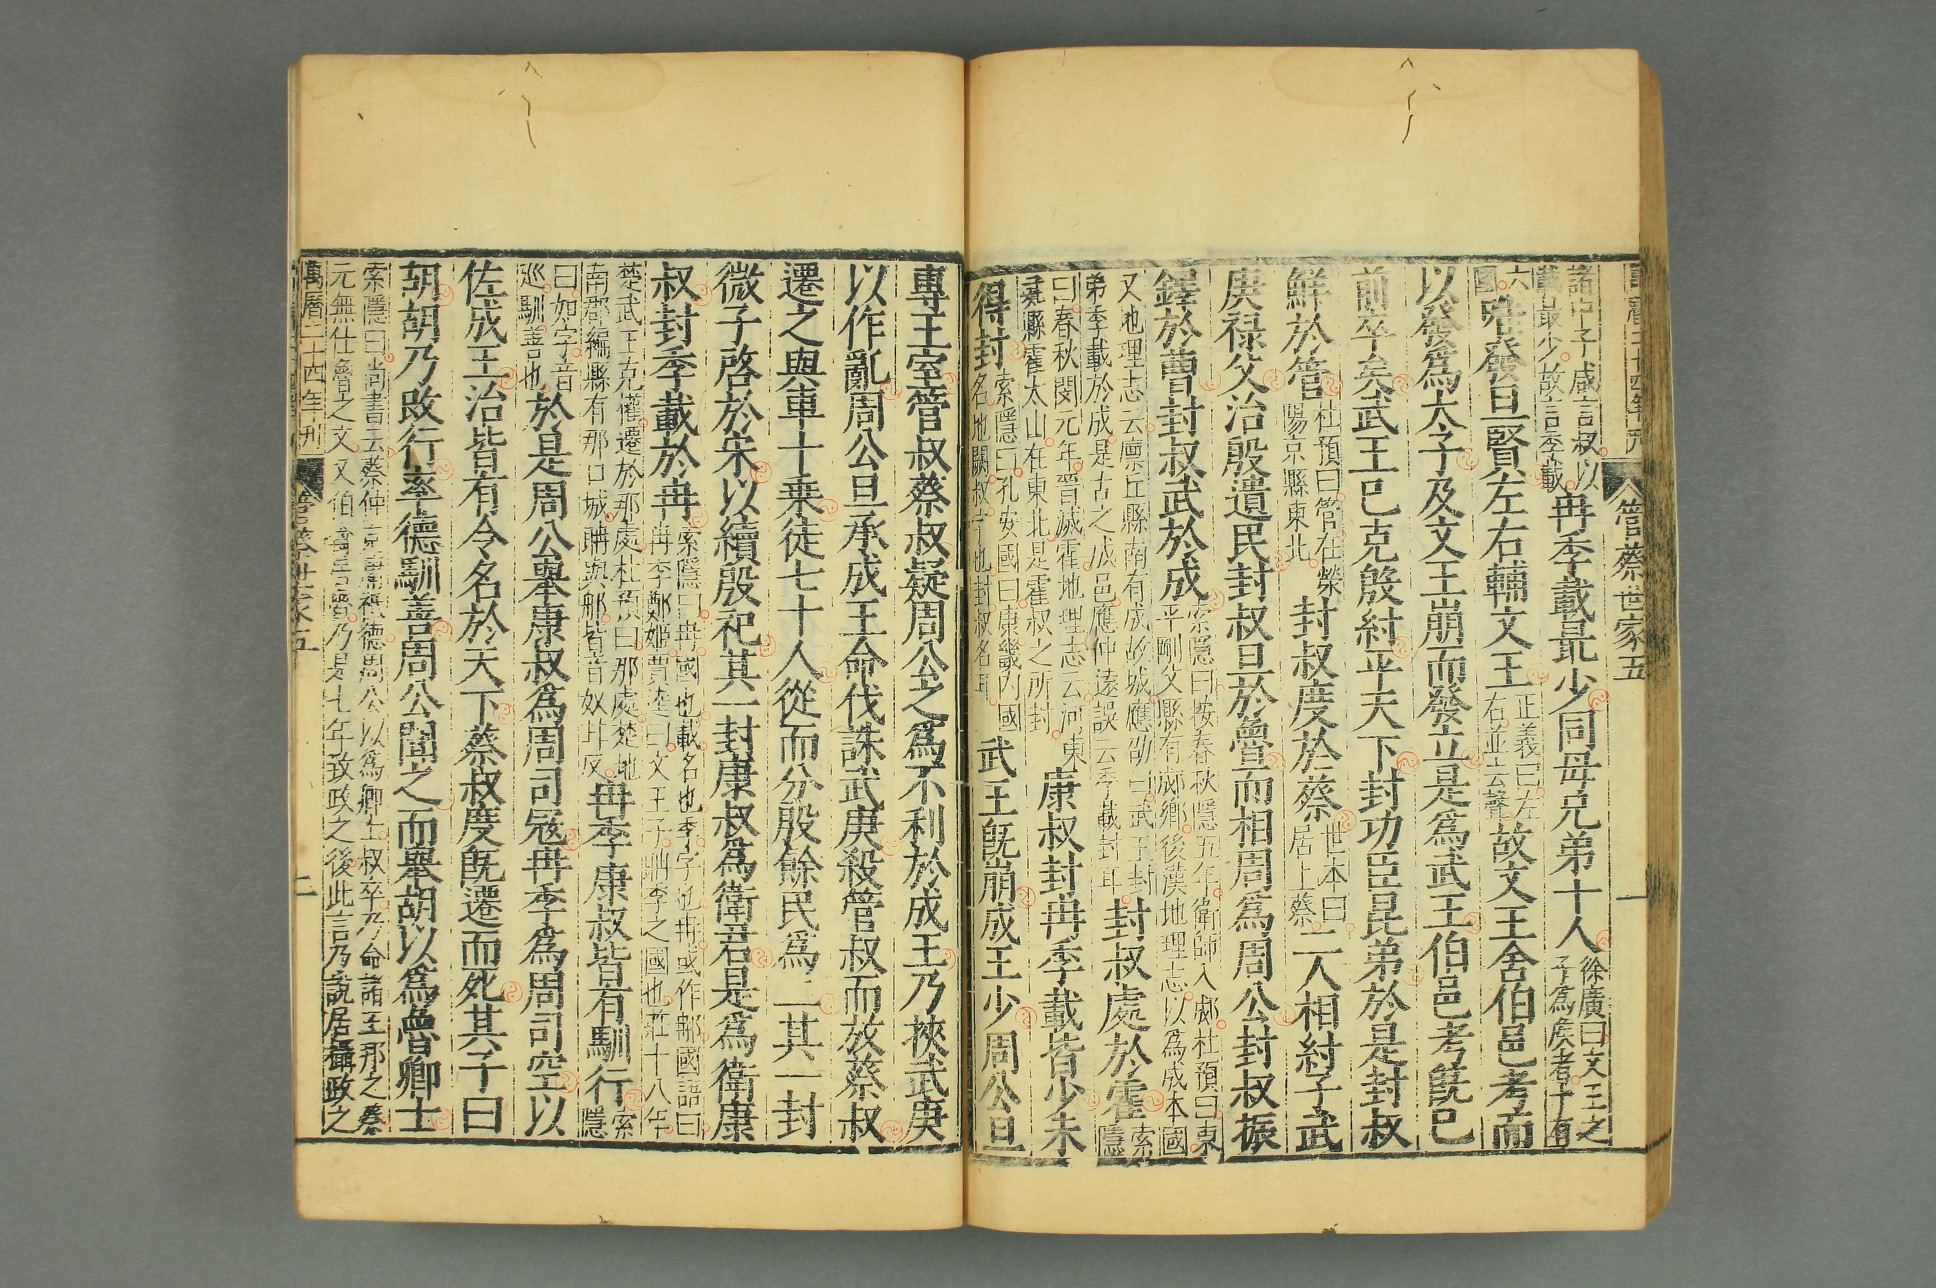 管蔡世家五
一
諸中子咸言叔以
載最少故言季載
冉季載最少同母兄弟十人
徐廣曰文王之
子爲侯者十有
六
國
唯發旦賢左右輔文王
正義曰左
右並去聲
故文王舍伯邑考而
以發爲太子及文王崩而發立是爲武王伯邑考旣已
前卒矣武王已克殷紂平天下封功臣昆弟於是封叔
鮮於管
杜預曰管在滎
陽京縣東北
封叔度於蔡
世本曰
居上蔡
二人相紂子武
庚祿父治殷遺民封叔旦於魯而相周爲周公封叔振
鐸於曹封叔武於成
索隱曰按春秋隱五年衛師入郕杜預曰東
平剛父縣有郕鄉後漢地理志以爲成本國
又地理志云廩丘縣南有成故城應劭曰武王封
弟季載於成是古之成邑應仲遠誤云季載封耳
封叔處於霍
索
隱
曰春秋閔元年晉滅霍地理志云河東
彘縣霍太山在東北是霍叔之所封
康叔封冉季載皆少未
得封
索隱曰孔安國曰康畿內國
名地闕叔字也封叔名耳
武王旣崩成王少周公旦
專王室管叔蔡叔疑周公之爲不利於成王乃挾武庚
以作亂周公旦承成王命伐誅武庚殺管叔而放蔡叔
遷之與車十乘徒七十人從而分殷餘民爲二其一封
微子啓於宋以續殷祀其一封康叔爲衛君是爲衛康
叔封季載於冉
索隱曰冉國也載名也季字也冉或作𨚗國語曰
冉季鄭姬賈逵曰文王子耼季之國也莊十八年
楚武王克權遷於那處杜預曰那處楚地
南郡編縣有那口城耼與𨚗皆音奴甘反
冉季康叔皆有馴行
索
隱
曰如字音
巡馴善也
於是周公舉康叔爲周司寇冉季爲周司空以
佐成王治皆有令名於天下蔡叔度旣遷而死其子曰
胡胡乃改行率德馴善周公聞之而舉胡以爲魯卿士
索隱曰尚書云蔡仲克庸祗德周公以爲卿士叔卒乃命諸王邦之蔡
元無仕魯之文又伯禽居魯乃是七年致政之後此言乃說居攝政之
萬曆二十四年刊
管蔡世家五
二